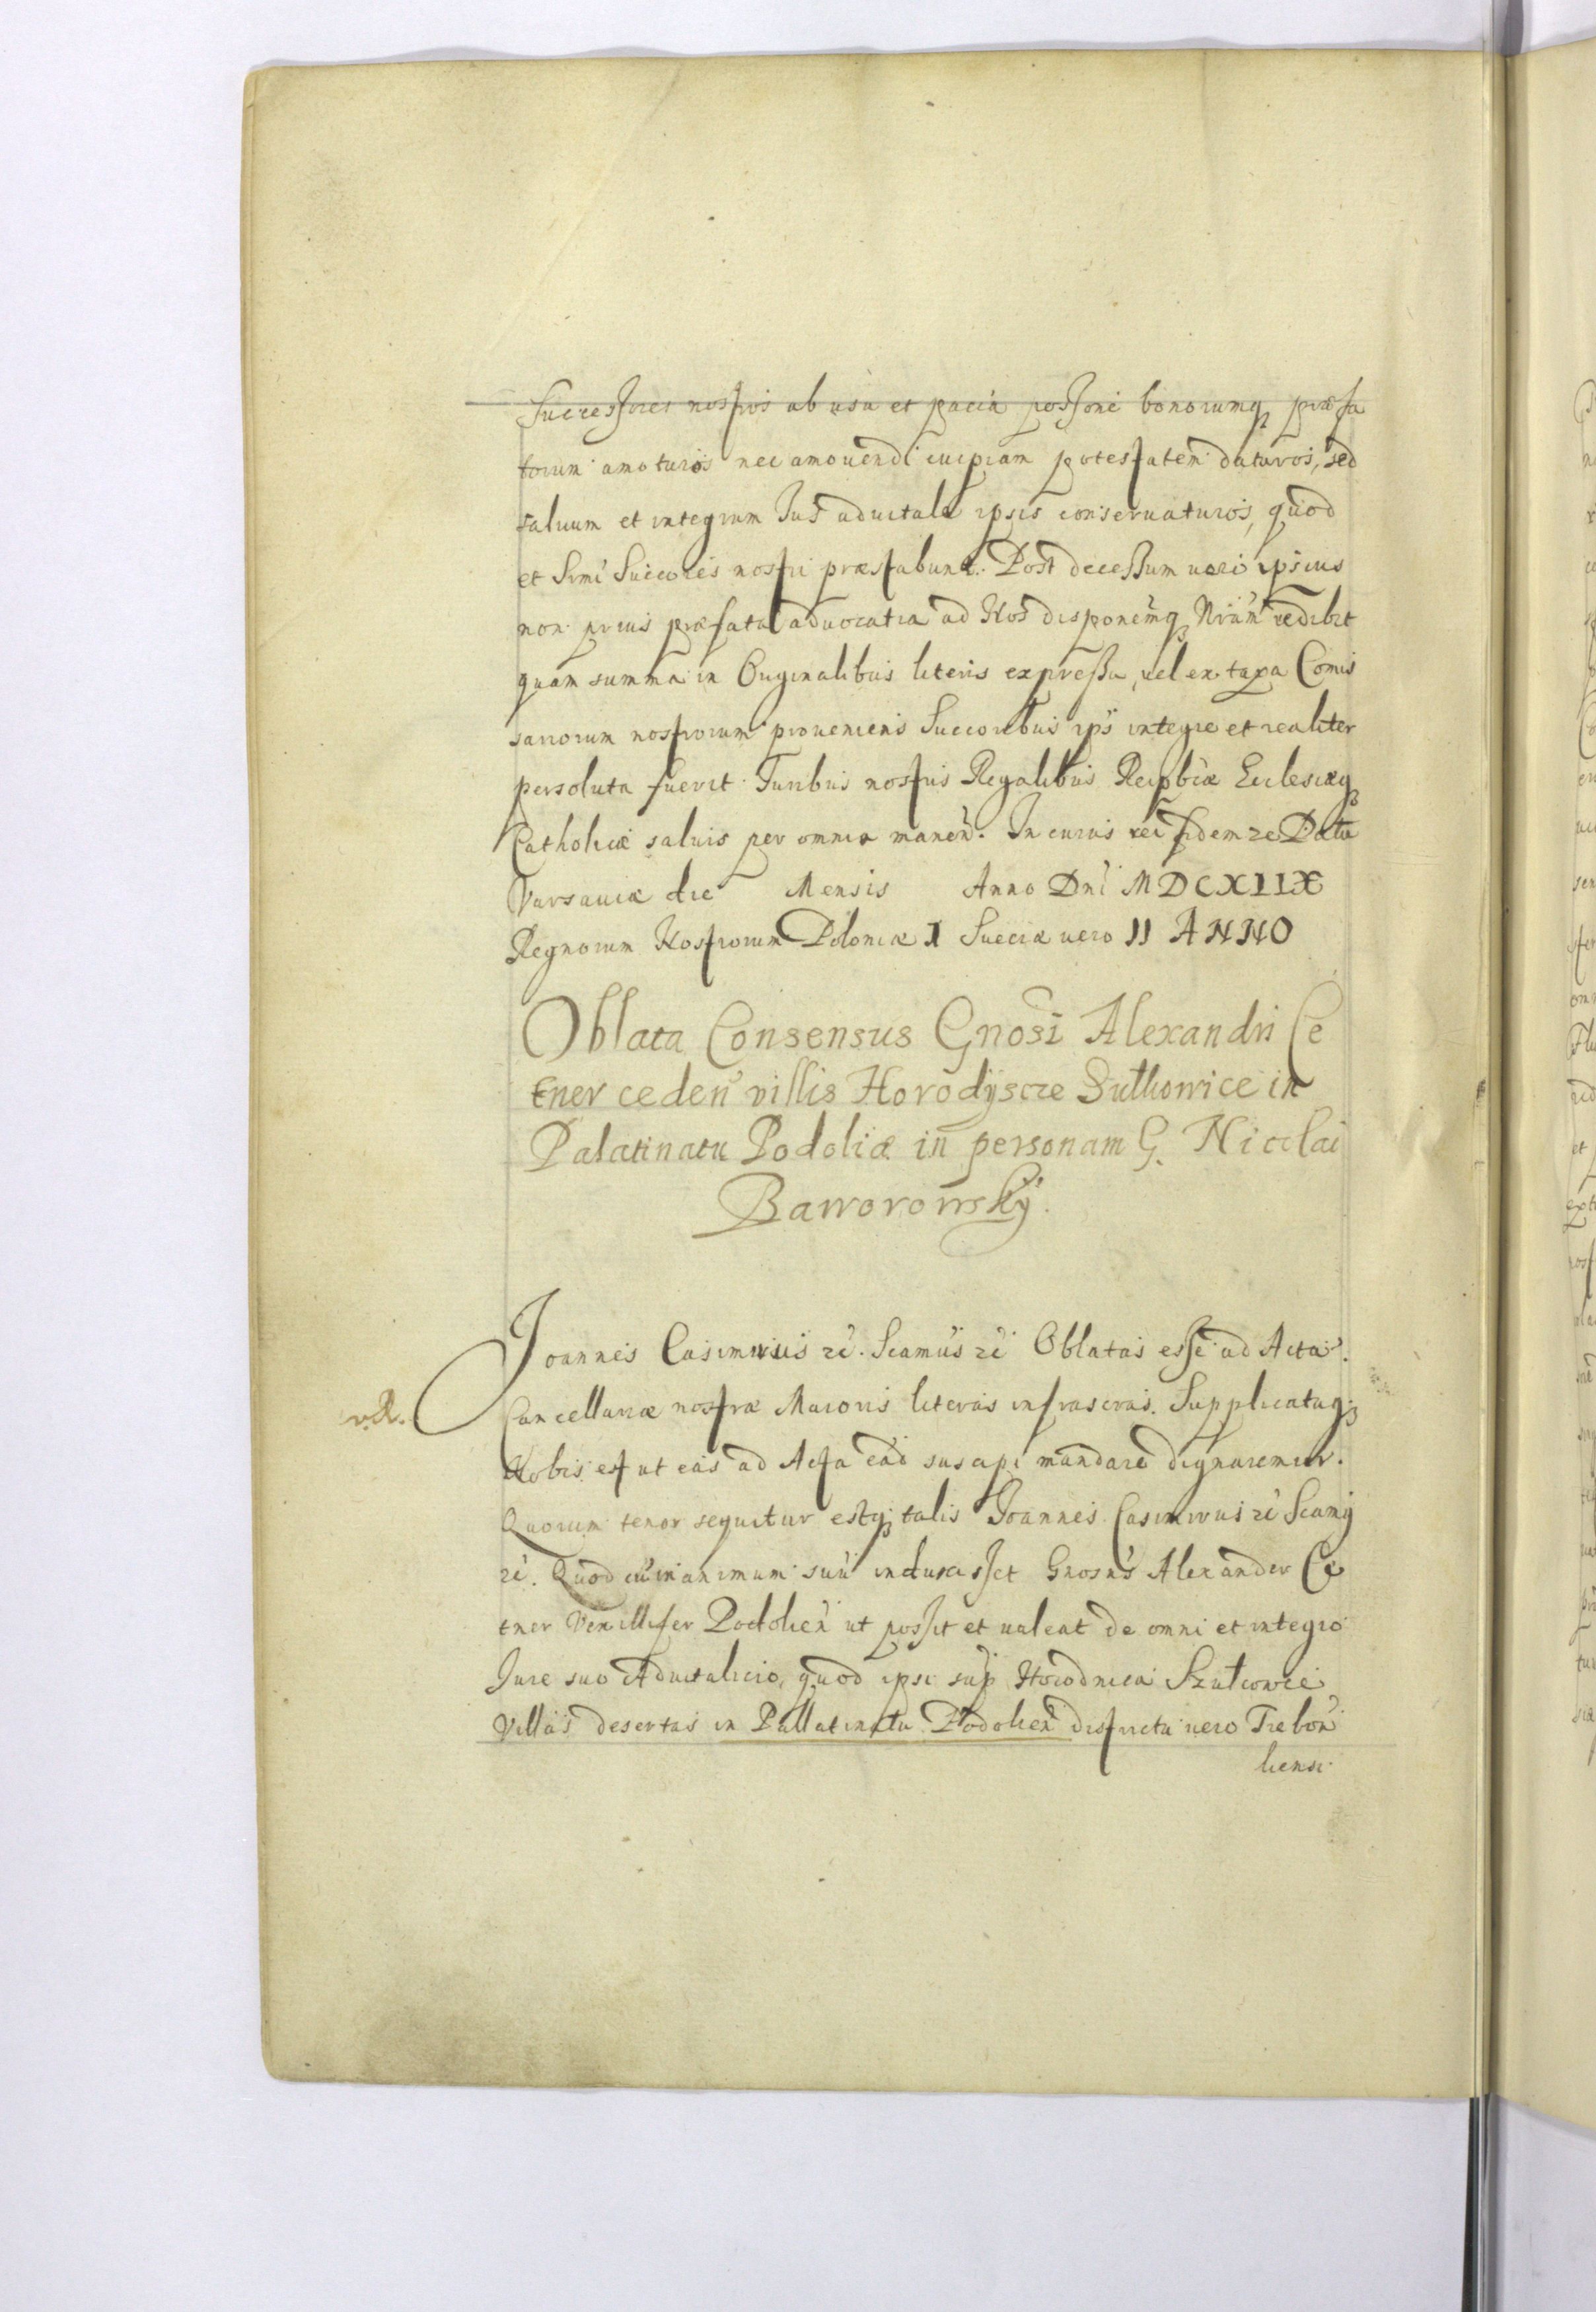 Successores nostros ab usu et pacia possone bonorumq praefa
torum amoturos nec amouendi cuipiam potestatem daturos, sed
saluum et integrum Jus aduitale ipsis conseruaturos, quod
et Srmi Succores nostri praestabunt. Post decessum uero ipsius
non prius praefata aduocatia ad Nos disponemq Nram redibit
quam summa in Originalibus literis expressa, uel ex taxa Comis
sariorum nostrorum proueniens Succoribus ips integre et realiter
persoluta fuerit. Juribus nostris Regalibus Reipbcae Ecclesiaeq
Catholicae saluis per omnia manen. In cuius rei fidem ze Datu
Varsauiae die Mensis Anno Dni MDCXLIX
Regnorum Nostrorum Poloniae I Sueciae uero II ANNO
Oblata Consensus Gnosi Alexandri Ce
tner ceden villis Horodyscze Sutkowice in
Palatinatu Podoliae in personam G. Nicolai
Baworowsky.
Joannes Casimirus ze. Scamus ze Oblatas esse ad Acta
v.R. Cancellariae nostrae Maioris literas infrascras. Supplicatuq;
Nobis est ut eas ad Acta ead suscipi mandare dignaremur.
Quorum tenor sequitur estq; talis Joannes Casimirus ze Scamq
ze. Quod cum in animum suu induxisset Gnosus Alexander Ce
tner Vexillifer Podolien ut possit et ualeat de omni et integro
Jure suo Aduitalicio, quod ipsi sup Horodnica Szutcowce
Villas desertas in Pallatinatu Podolien districtu uero Trebow
liensi